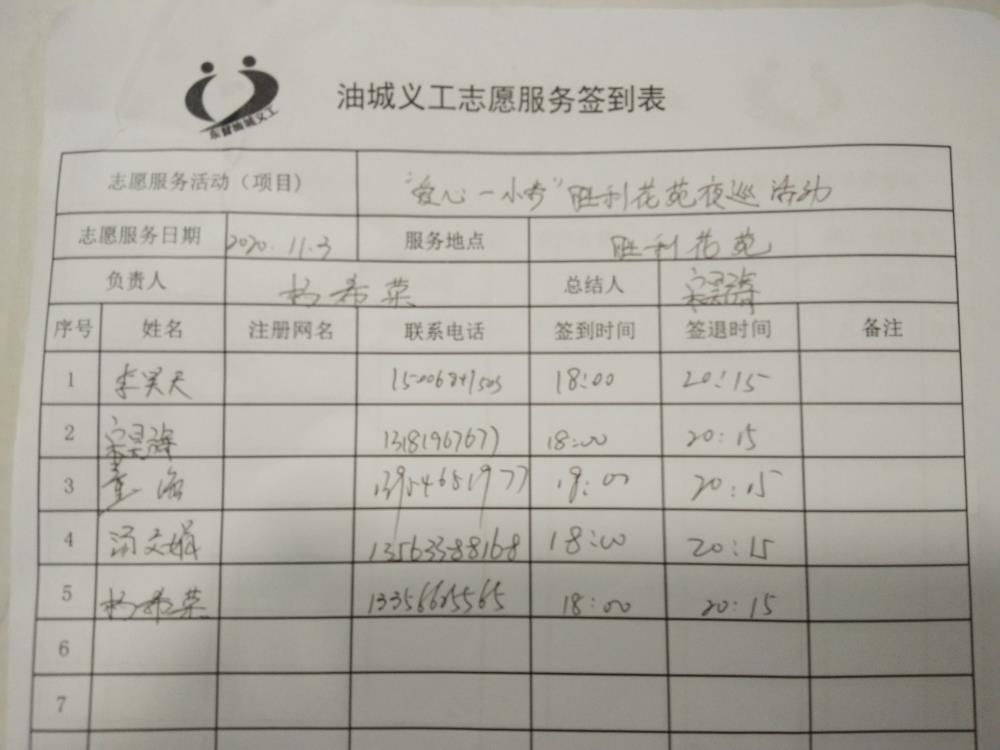 东营油城义工
油城义工志愿服务签到表
志愿服务活动（项目） "爱心一小步"胜利花苑夜巡活动
志愿服务日期 2020.11.3 服务地点 胜利花苑
负责人 杨希荣 总结人
序号 姓名 注册网名 联系电话 签到时间 签退时间 备注
1 李昊天 18:00 20:15
2 13181967677 18:00 20:15
3 董海 13954651977 18:00 20:15
4 汤文娟 13563388168 18:00 20:15
5 杨希荣 13356625565 18:00 20:15
6
7